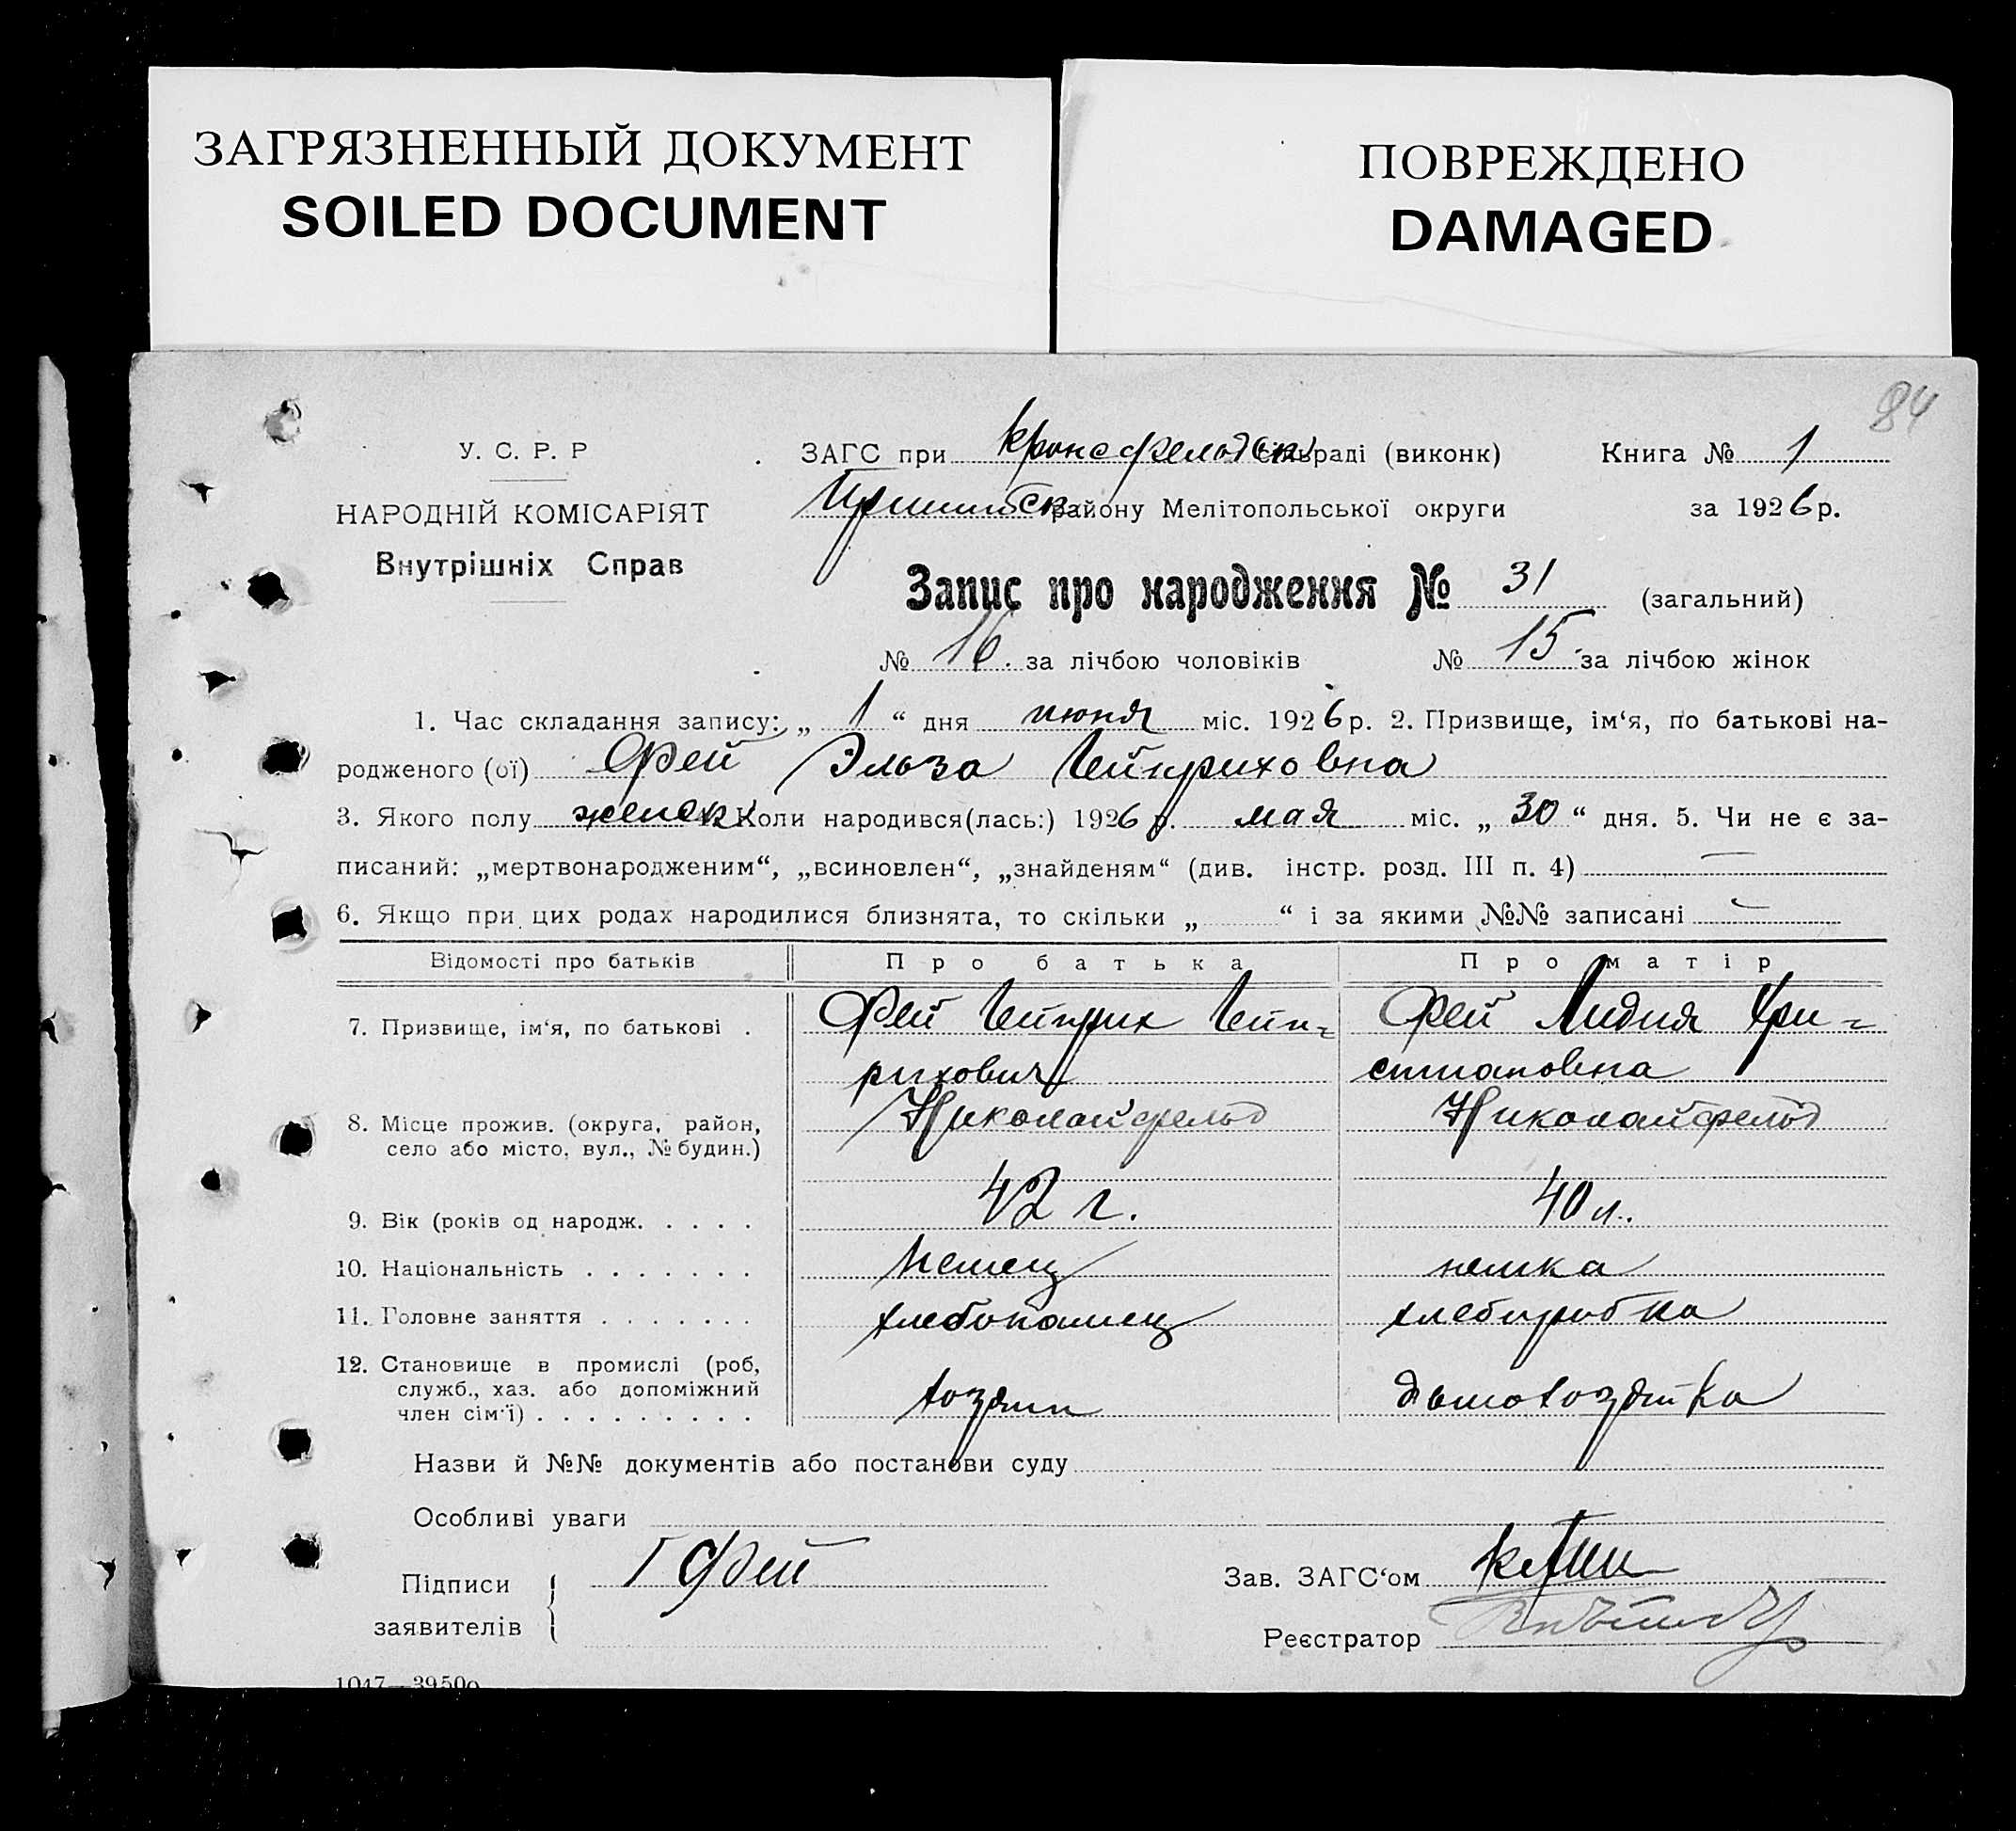 ЗАГРЯЗНЕННЫЙ ДОКУМЕНТ
SOILED DOCUMENT
ПОВРЕЖДЕНО
DAMAGED
84
У. С. Р. Р
НАРОДНІЙ КОМІСАРІЯТ
Внутрішніх Справ
ЗАГС при Кронсфельдск сільраді (виконк) Книга № 1
Пришибск району Мелітопольської округи за 1926 р.
Запис про народження № 31 (загальний)
№ 16. за лічбою чоловіків № 15. за лічбою жінок
1. Час складання запису: „ 1 “ дня июня міс. 1926 р. 2. Призвище, ім‘я, по батькові на-
родженого (ої) Фей Эльза Гейнриховна
3. Якого полу женск Коли народився(лась:) 1926 р. мая міс. „ 30 “ дня. 5. Чи не є за-
писаний: „мертвонародженим“, „всиновлен“, „знайденям“ (див. інстр. розд. III п. 4) —
6. Якщо при цих родах народилися близнята, то скільки „ “ і за якими №№ записані —
Відомості про батьків Про батька Про матір
7. Призвище, ім‘я, по батькові . Фей Гейнрих Гейн= Фей Лидия Хри=
рихович стиановна
8. Місце прожив. (округа, район, Николайфельд Николайфельд
село або місто, вул., № будин.)
9. Вік (років од народж. . . . . 42 г. 40 л.
10. Національність . . . . . . . Немец немка
11. Головне заняття . . . . . . . хлебопашец хлеборобка
12. Становище в промислі (роб,
служб., хаз. або допоміжний хозяин домохозяйка
член сім‘ї) . . . . . . . . .
Назви й №№ документів або постанови суду
Особливі уваги
Підписи Г Фей Зав. ЗАГС‘ом
заявителів Реєстратор
1047—39500